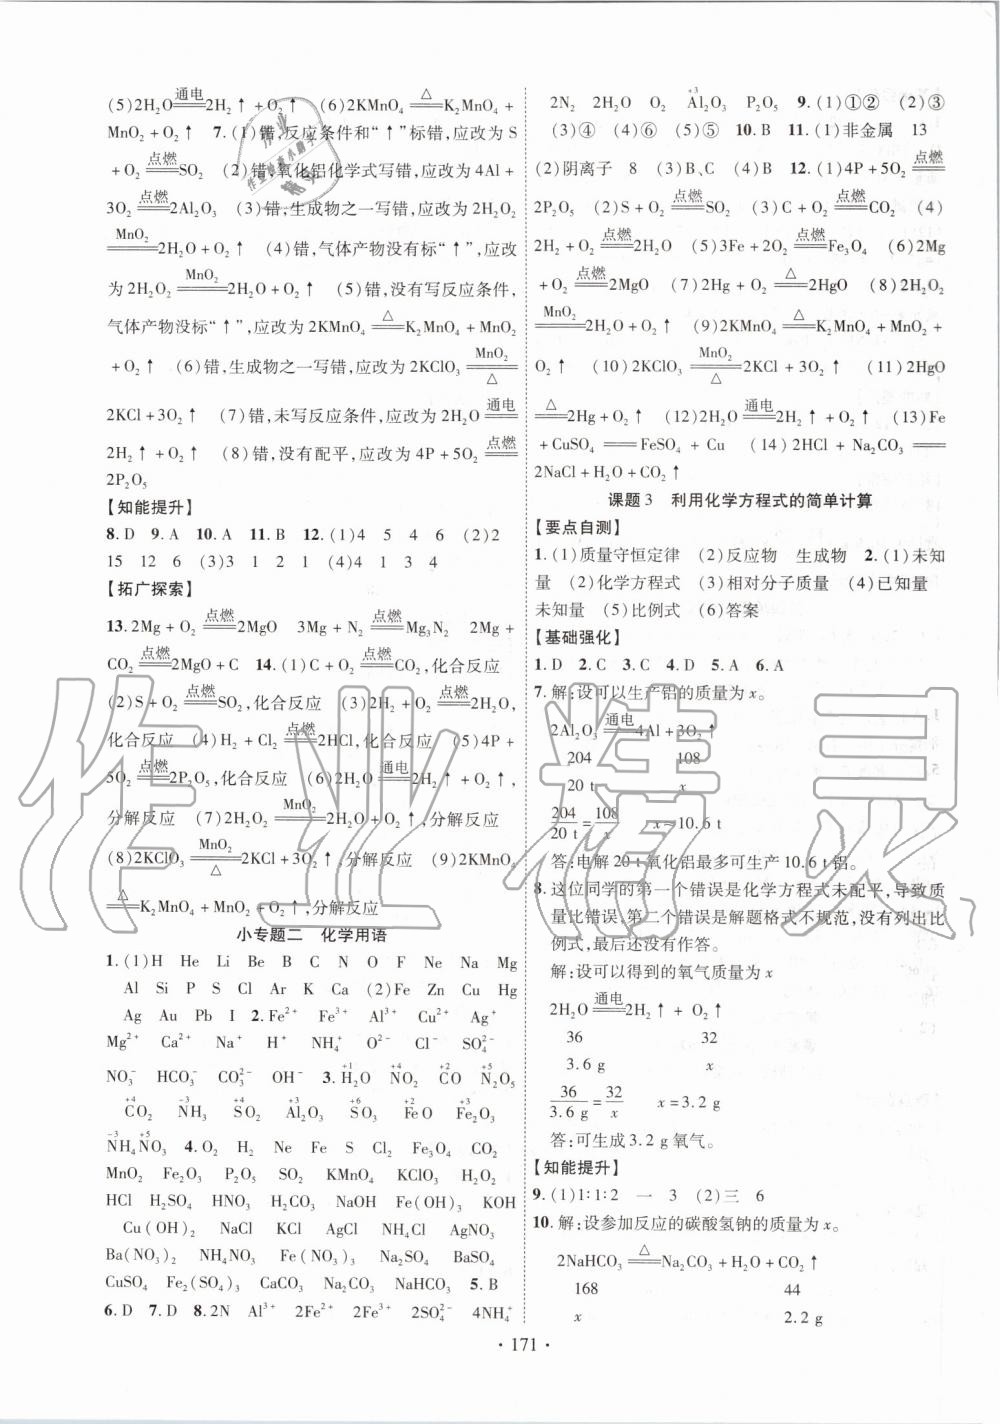 (5)2H₂O=通电=2H₂↑+O₂↑ (6)2KMnO₄=△=K₂MnO₄+
MnO₂+O₂↑ 7.(1)错,反应条件和“↑”标错,应改为S
+O₂=点燃=SO₂ (2)错,氧化铝化学式写错,应改为4Al+
3O₂=点燃=2Al₂O₃ (3)错,生成物之一写错,应改为2H₂O₂
=MnO₂=2H₂O+O₂↑ (4)错,气体产物没有标“↑”,应改
为2H₂O₂=MnO₂=2H₂O+O₂↑ (5)错,没有写反应条件,
气体产物没标“↑”,应改为2KMnO₄=△=K₂MnO₄+MnO₂
+O₂↑ (6)错,生成物之一写错,应改为2KClO₃=MnO₂/△=
2KCl+3O₂↑ (7)错,未写反应条件,应改为2H₂O=通电=
2H₂↑+O₂↑ (8)错,没有配平,应改为4P+5O₂=点燃=
2P₂O₅
【知能提升】
8.D 9.A 10.A 11.B 12.(1)4 5 4 6 (2)2
15 12 6 (3)3 1 2 1 (4)4 1 3 4
【拓广探索】
13.2Mg+O₂=点燃=2MgO 3Mg+N₂=点燃=Mg₃N₂ 2Mg+
CO₂=点燃=2MgO+C 14.(1)C+O₂=点燃=CO₂,化合反应
(2)S+O₂=点燃=SO₂,化合反应 (3)2H₂+O₂=点燃=2H₂O,
化合反应 (4)H₂+Cl₂=点燃=2HCl,化合反应 (5)4P+
5O₂=点燃=2P₂O₅,化合反应 (6)2H₂O=通电=2H₂↑+O₂↑,
分解反应 (7)2H₂O₂=MnO₂=2H₂O+O₂↑,分解反应
(8)2KClO₃=MnO₂/△=2KCl+3O₂↑,分解反应 (9)2KMnO₄
=△=K₂MnO₄+MnO₂+O₂↑,分解反应
小专题二 化学用语
1.(1)H He Li Be B C N O F Ne Na Mg
Al Si P S Cl Ar K Ca (2)Fe Zn Cu Hg
Ag Au Pb I 2.Fe²⁺ Fe³⁺ Al³⁺ Cu²⁺ Ag⁺
Mg²⁺ Ca²⁺ Na⁺ H⁺ NH₄⁺ O²⁻ Cl⁻ SO₄²⁻
NO₃⁻ HCO₃⁻ CO₃²⁻ OH⁻ 3.H₂O(+1) NO₂(+4) CO(+2) N₂O₅(+5)
CO₂(+4) NH₃(-3) SO₂(+4) Al₂O₃(+3) FeO(+2) Fe₂O₃(+3)
NH₄NO₃(-3 +5) 4.O₂ H₂ Ne Fe S Cl₂ Fe₃O₄ CO₂
MnO₂ Fe₂O₃ P₂O₅ SO₂ KMnO₄ KClO₃ H₂O₂
HCl H₂SO₄ HNO₃ H₂CO₃ NaOH Fe(OH)₃ KOH
Cu(OH)₂ NaCl KCl AgCl NH₄Cl AgNO₃
Ba(NO₃)₂ NH₄NO₃ Fe(NO₃)₃ Na₂SO₄ BaSO₄
CuSO₄ Fe₂(SO₄)₃ CaCO₃ Na₂CO₃ NaHCO₃ 5.B
6.D 7.D 8.2N Al³⁺ 2Fe²⁺ 2Fe³⁺ 2SO₄²⁻ 4NH₄⁺
2N₂ 2H₂O O₂ Al₂O₃(+3) P₂O₅ 9.(1)①② (2)③
(3)④ (4)⑥ (5)⑤ 10.B 11.(1)非金属 13
(2)阴离子 8 (3)B、C (4)B 12.(1)4P+5O₂=点燃=
2P₂O₅ (2)S+O₂=点燃=SO₂ (3)C+O₂=点燃=CO₂ (4)
2H₂+O₂=点燃=2H₂O (5)3Fe+2O₂=点燃=Fe₃O₄ (6)2Mg
+O₂=点燃=2MgO (7)2Hg+O₂=△=2HgO (8)2H₂O₂
=MnO₂=2H₂O+O₂↑ (9)2KMnO₄=△=K₂MnO₄+MnO₂+
O₂↑ (10)2KClO₃=MnO₂/△=2KCl+3O₂↑ (11)2HgO
=△=2Hg+O₂↑ (12)2H₂O=通电=2H₂↑+O₂↑ (13)Fe
+CuSO₄══FeSO₄+Cu (14)2HCl+Na₂CO₃══
2NaCl+H₂O+CO₂↑
课题3 利用化学方程式的简单计算
【要点自测】
1.(1)质量守恒定律 (2)反应物 生成物 2.(1)未知
量 (2)化学方程式 (3)相对分子质量 (4)已知量
未知量 (5)比例式 (6)答案
【基础强化】
1.D 2.C 3.C 4.D 5.A 6.A
7.解:设可以生产铝的质量为x。
2Al₂O₃=通电=4Al+3O₂↑
204 108
20 t x
204/20 t=108/x x≈10.6 t
答:电解20 t氧化铝最多可生产10.6 t铝。
8.这位同学的第一个错误是化学方程式未配平,导致质
量比错误。第二个错误是解题格式不规范,没有列出比
例式,最后还没有作答。
解:设可以得到的氧气质量为x
2H₂O=通电=2H₂↑+O₂↑
36 32
3.6 g x
36/3.6 g=32/x x=3.2 g
答:可生成3.2 g氧气。
【知能提升】
9.(1)1∶1∶2 一 3 (2)三 6
10.解:设参加反应的碳酸氢钠的质量为x。
2NaHCO₃=△=Na₂CO₃+H₂O+CO₂↑
168 44
x 2.2 g
·171·
作业精灵